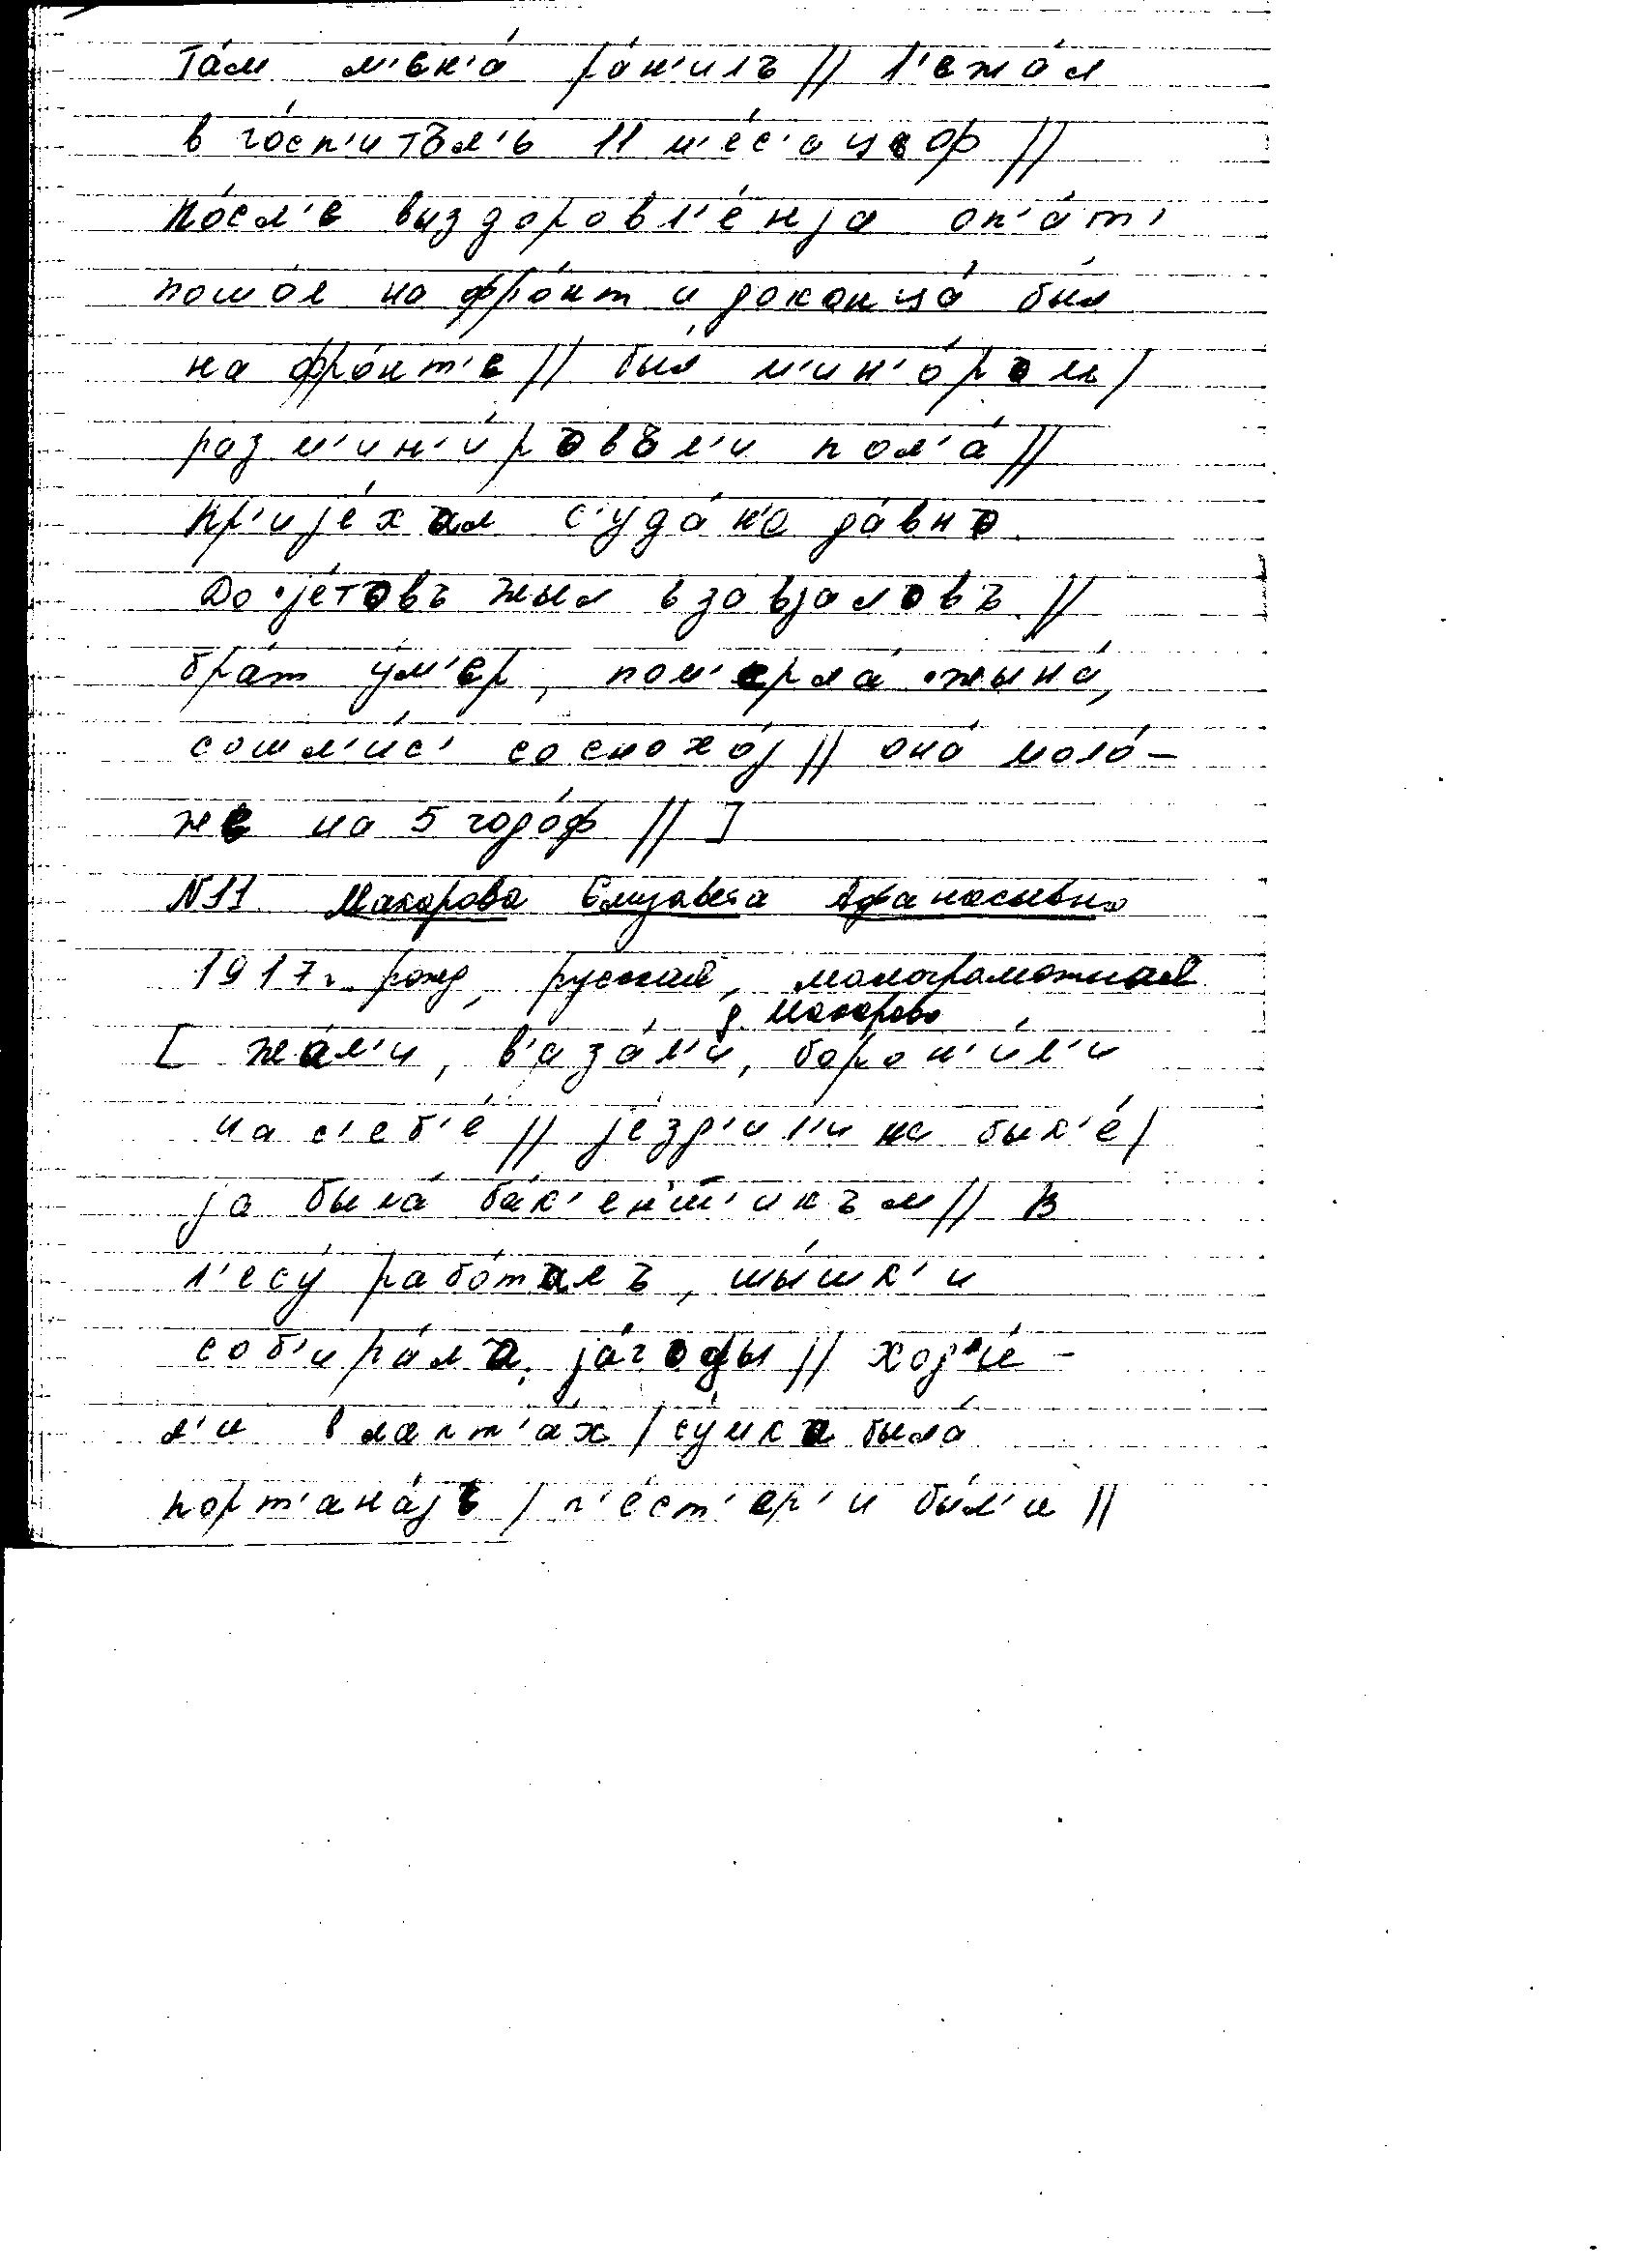 та́м м'ен'а́ ра́н'илъ // л'ежа́л
в го́сп'итъл'ь 11 м'е́с'ацоф //
по́сл'е виздоровл'е́нја оп'а́т'
пошо́л на фро́нт и доконца́ был
на фро́нт'е // был м'ин'о́ром /
разм'ин'и́ровъл'и пол'а́ //
пр'ије́хал с'уда́ н'е да́вно.
До је́товъ жыл в завјаловъ //
бра́т у́м'ер, пом'ерла́ жына́,
сошл'и́с' со сно́хо́ј // она́ моло́-
же на 5 годо́ф // ]
N11 Макарова Елизавета Афанасьевна
1917г. рожд, русская, малограмотная
д. Макарово
[ жа́л'и, в'аза́л'и, борон'и́л'и
на с'еб'е́ // је́зд'ил'и на бык'е́ /
ја была́ ба́к'енш'икъм // в
л'есу́ рабо́талъ, шы́шк'и
соб'ира́ла, ја́годы // ход'и́-
л'и в лапт'а́х / су́мка была́
порт'ана́јъ / п'е́ст'ер'и бы́л'и //